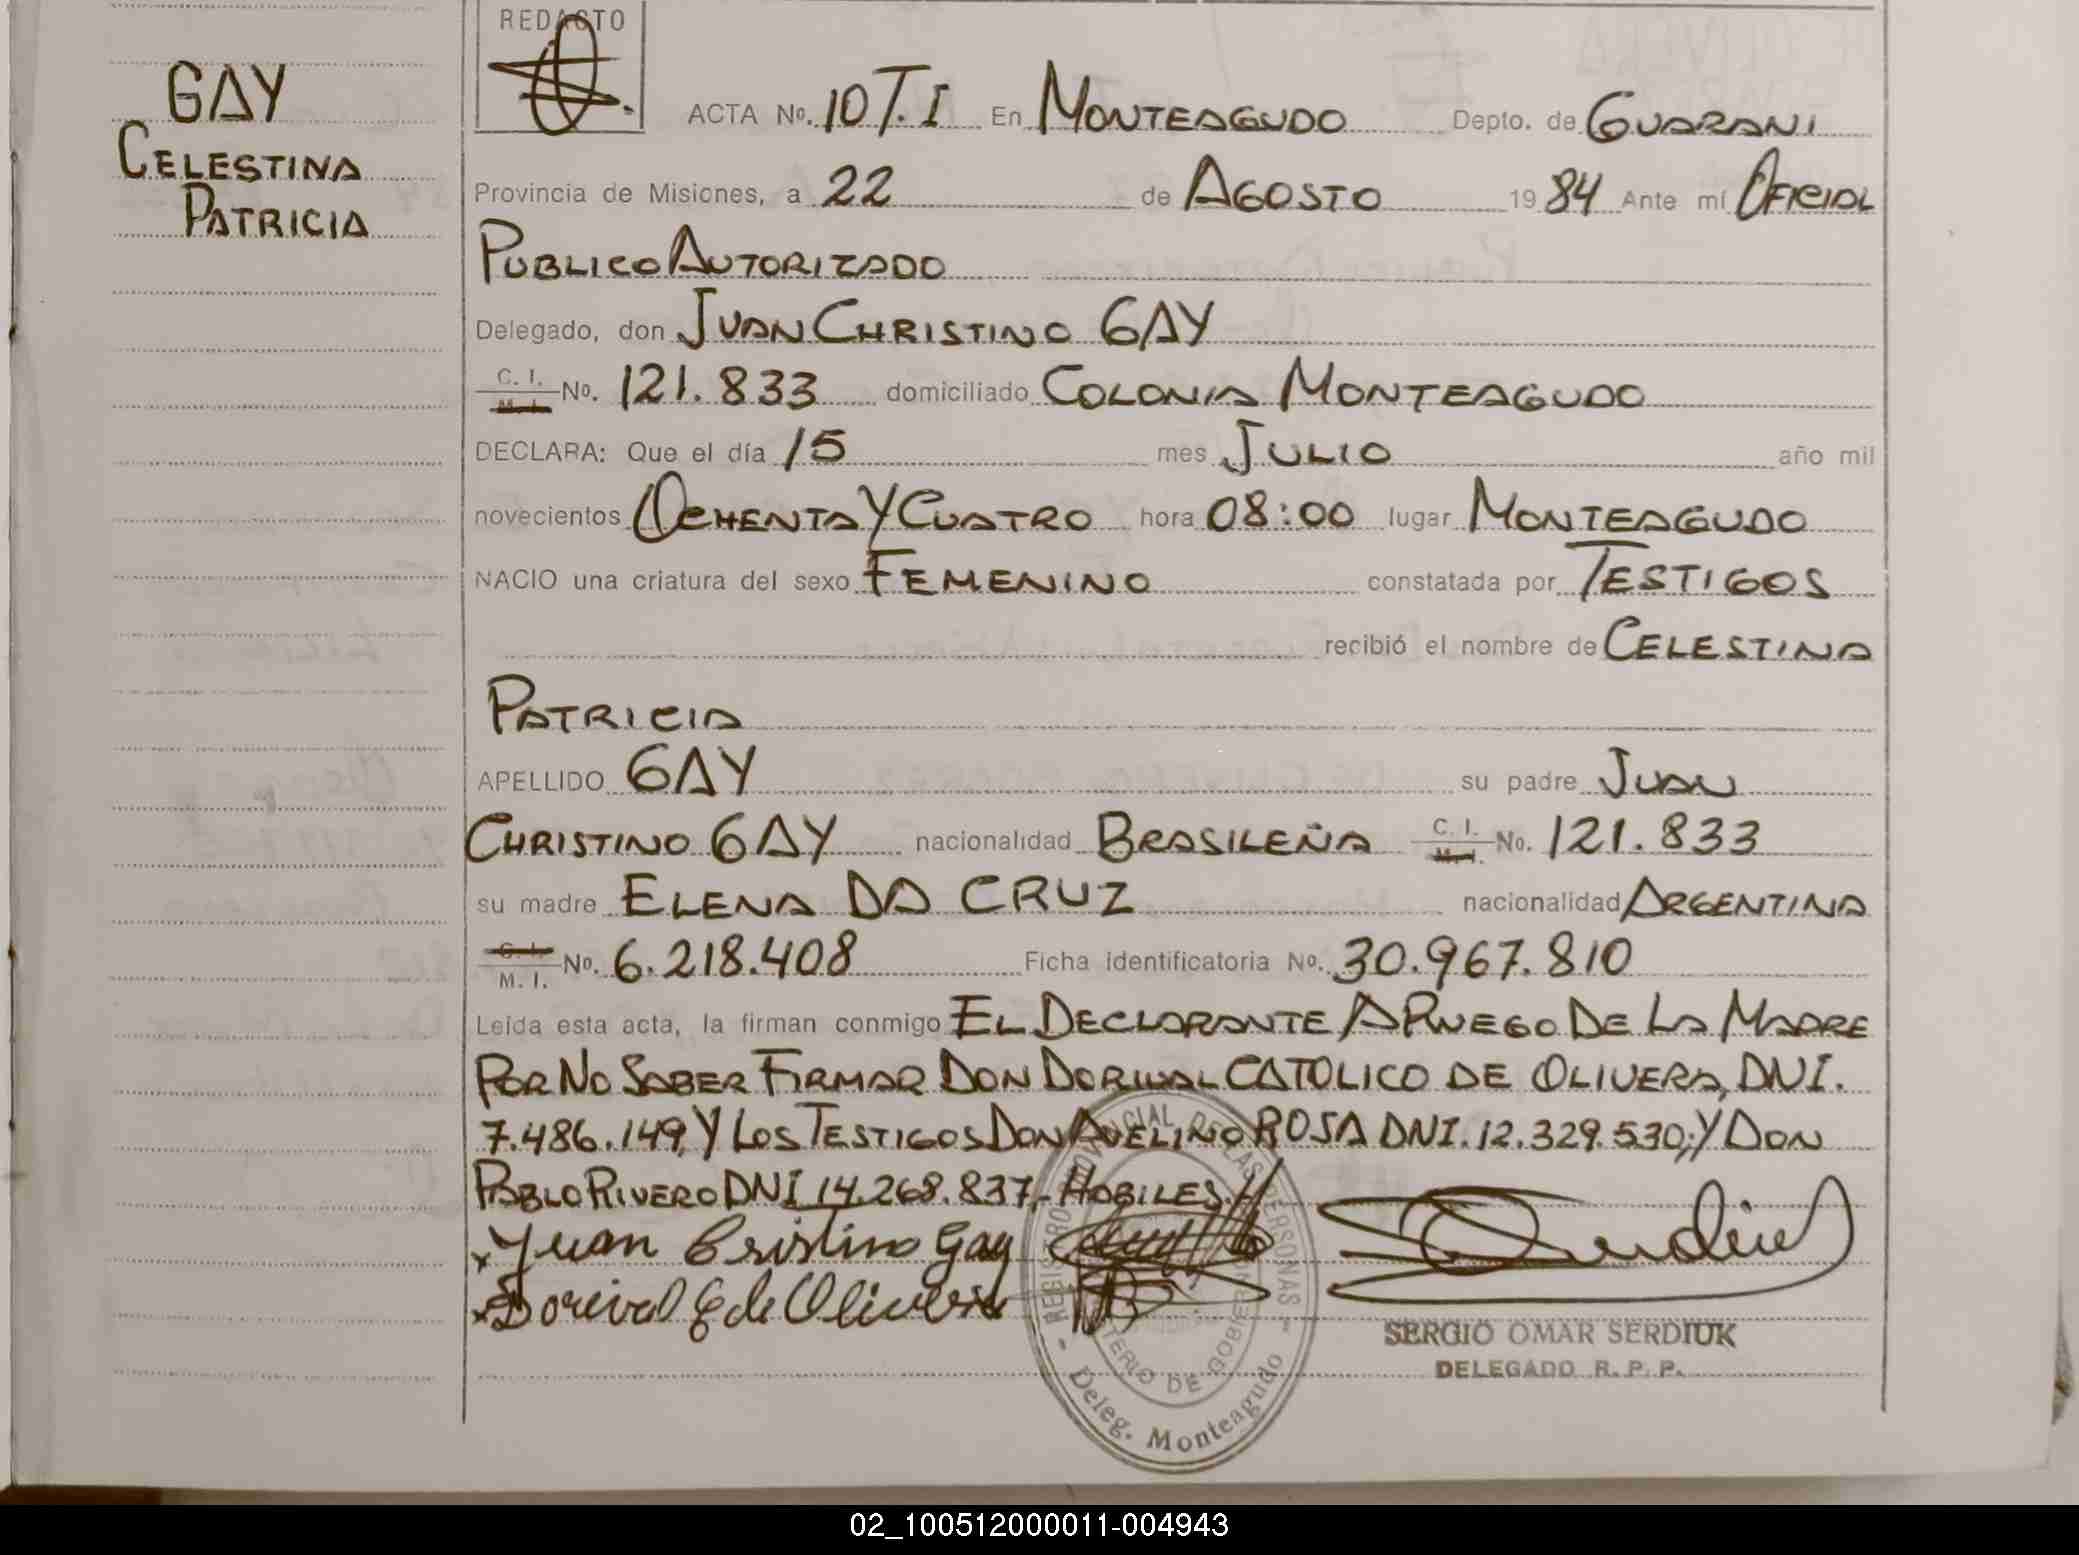 REDACTO
GAY
CELESTINA
PATRICIA
ACTA No. 10 T. I En MONTEAGUDO Depto. de GUARANI
Provincia de Misiones, a 22 de AGOSTO 1984 Ante mí OFICIAL
PUBLICO AUTORIZADO
Delegado, don JUAN CHRISTINO GAY
C. I. M. I. No. 121.833 domiciliado COLONIA MONTEAGUDO
DECLARA: Que el día 15 mes JULIO año mil
novecientos OCHENTA Y CUATRO hora 08:00 lugar MONTEAGUDO
NACIO una criatura del sexo FEMENINO constatada por TESTIGOS
recibió el nombre de CELESTINA
PATRICIA
APELLIDO GAY su padre JUAN
CHRISTINO GAY nacionalidad BRASILEÑA C. I. M. I. No. 121.833
su madre ELENA DA CRUZ nacionalidad ARGENTINA
C. I. M. I. No. 6.218.408 Ficha identificatoria No. 30.967.810
Leída esta acta, la firman conmigo EL DECLARANTE A RUEGO DE LA MADRE
POR NO SABER FIRMAR DON DORIVAL CATOLICO DE OLIVERA, DNI.
7.486.149, Y LOS TESTIGOS DON AVELINO ROSA DNI. 12.329.530, Y DON
PABLO RIVERO DNI 14.268.837,- HABILES.//
x Yuan Cristino Gay
x Dorival C de Oliveira
REGISTRO PROVINCIAL DE LAS PERSONAS
MINISTERIO DE GOBIERNO
Deleg. Monteagudo
SERGIO OMAR SERDIUK
DELEGADO R. P. P.
02_100512000011-004943